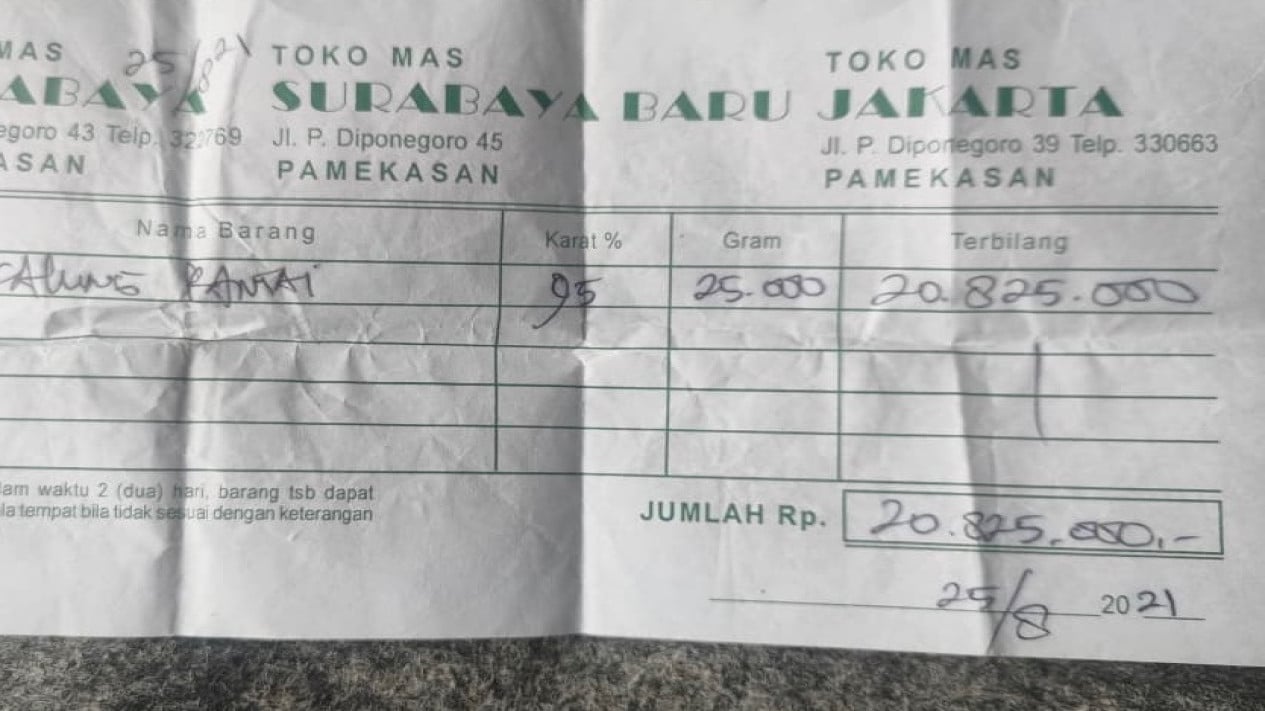 MAS
ABAYA
egoro 43 Telp. 32769
ASAN
25/8 21
TOKO MAS
SURABAYA BARU
Jl. P. Diponegoro 45
PAMEKASAN
TOKO MAS
JAKARTA
Jl. P. Diponegoro 39 Telp. 330663
PAMEKASAN
Nama Barang Karat % Gram Terbilang
CALUNG RANTAI 95 25.000 20.825.000
lam waktu 2 (dua) hari, barang tsb dapat
la tempat bila tidak sesuai dengan keterangan
JUMLAH Rp. 20.825.000,-
25/8 2021